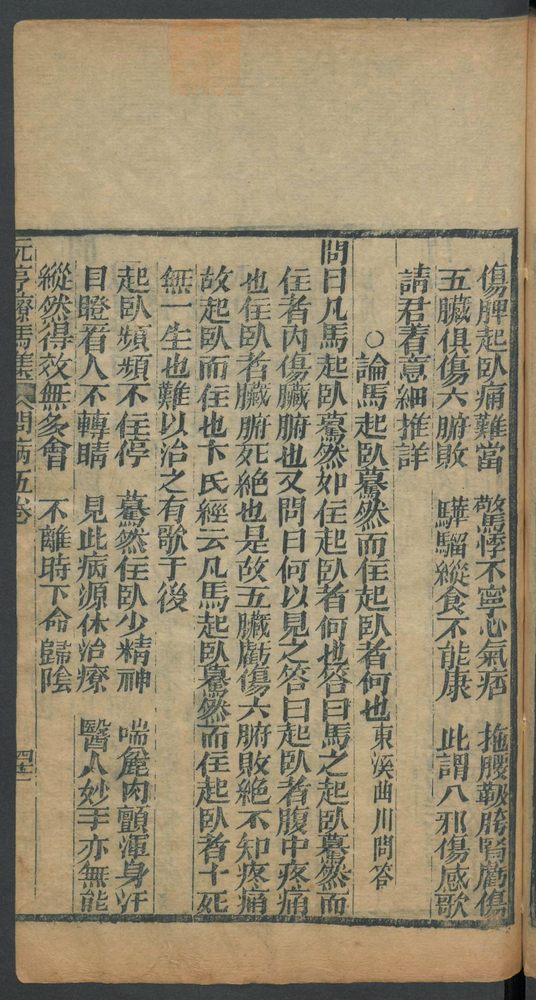 傷脾起臥痛難當　驚悸不寧心氣痛　拖腰靸胯腎虧傷
五臟俱傷六腑敗　驊騮縱食不能康　此謂八邪傷感歌
請君着意細推詳
○論馬起臥驀然而住起臥者何也東溪曲川問答
問曰凡馬起臥驀然如住起臥者何也答曰馬之起臥驀然而
住者内傷臟腑也又問曰何以見之答曰起臥者腹中疼痛
也住臥者臟腑死絶也是故五臟虧傷六腑敗絶不知疼痛
故起臥而住也卞氏經云凡馬起臥驀然而住起臥者十死
無一生也難以治之有歌于後
起臥頻頻不住停　驀然住臥少精神　喘麄肉顫渾身汗
目瞪看人不轉睛　見此病源休治療　醫人妙手亦無能
縱然得效無多會　不離時下命歸陰
元亨療馬集　八問病五卷